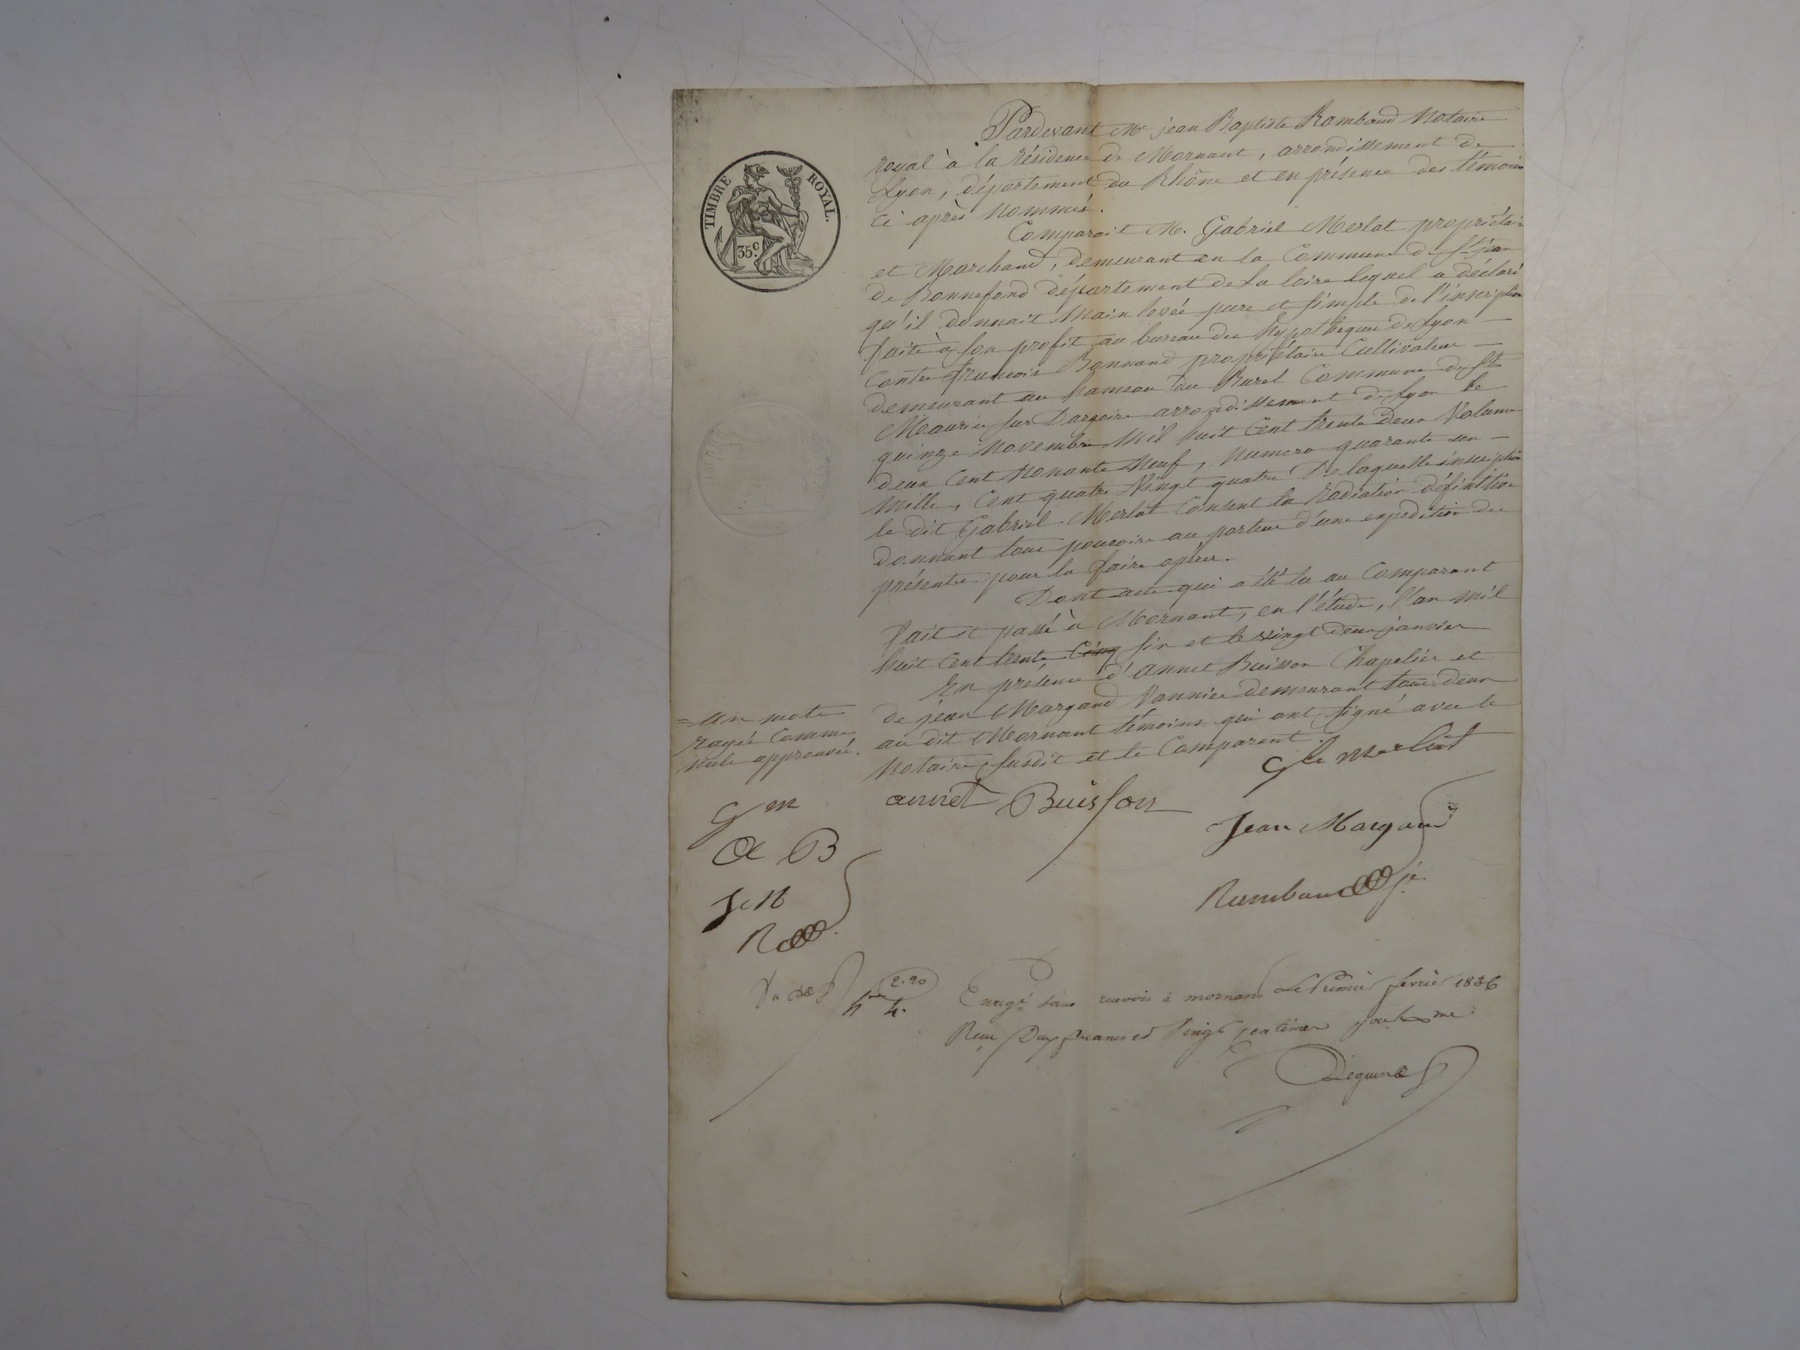 TIMBRE ROYAL.
35.c
Pardevant Me jean Baptiste Rambaud Notaire
royal à la résidence de Mornant, arrondissement de
Lyon, département du Rhône et en présence des témoins
ci après nommés.
Comparait M. Gabriel Merlat propriétaire
et Marchand, demeurant en la Commune de St jean
de Bonnefond département de la loire lequel a déclaré
qu'il donnait Main levée pure et simple de l'inscription
faite à son profit au bureau des hypothèques de Lyon
Contre francois Bonnand propriétaire Cultivateur
demeurant au hameau du Burel Commune de St
Maurice sur Dargoire arrondissement de Lyon le
quinze Novembre Mil huit Cent trente deux Volume
deux Cent Nonante Neuf, Numero quarante un
Mille, Cent quatre Vingt quatre De laquelle inscription
le dit Gabriel Merlat Consent la radiation définitive
donnant tout pouvoir au porteur d'une expédition des
présentes pour la faire opérer.
Dont acte qui a été lu au Comparant
fait et passé à Mornant, en l'étude, l'an Mil
huit Cent trente Cinq six et le vingt deux janvier
En présence d'annet Buisson Chapelier et
de jean Margand Vannier demeurant tous deux
au dit Mornant témoins qui ont signé avec le
Notaire susdit et le Comparant.
= un mote
rayée Comme
nule approuvée.
Gle merlat
annet Buisson
Jean Margand
Rambaud je
G m
a B
J M
R
2.20
Enregé sans renvois à mornant Le Premier fevrier 1836
Recu Deux francs et Vingt centimes